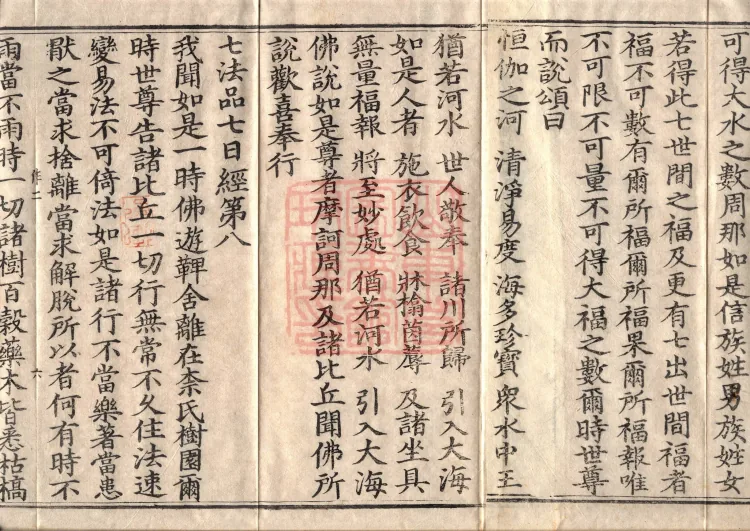 可得大水之數周那如是信族姓男族姓女
若得此七世間之福及更有七出世間福者
福不可數有爾所福爾所福果爾所福報唯
不可限不可量不可得大福之數爾時世尊
而說頌曰
恒伽之河 清淨易度 海多珍寶 眾水中王
猶若河水 世人敬奉 諸川所歸 引入大海
如是人者 施衣飲食 牀榻茵蓐 及諸坐具
無量福報 將至妙處 猶若河水 引入大海
佛說如是尊者摩訶周那及諸比丘聞佛所
說歡喜奉行
七法品七日經第八
我聞如是一時佛遊鞞舍離在柰氏樹園爾
時世尊告諸比丘一切行無常不久住法速
變易法不可倚法如是諸行不當樂著當患
厭之當求捨離當求解脫所以者何有時不
雨當不雨時一切諸樹百穀藥木皆悉枯槁
六